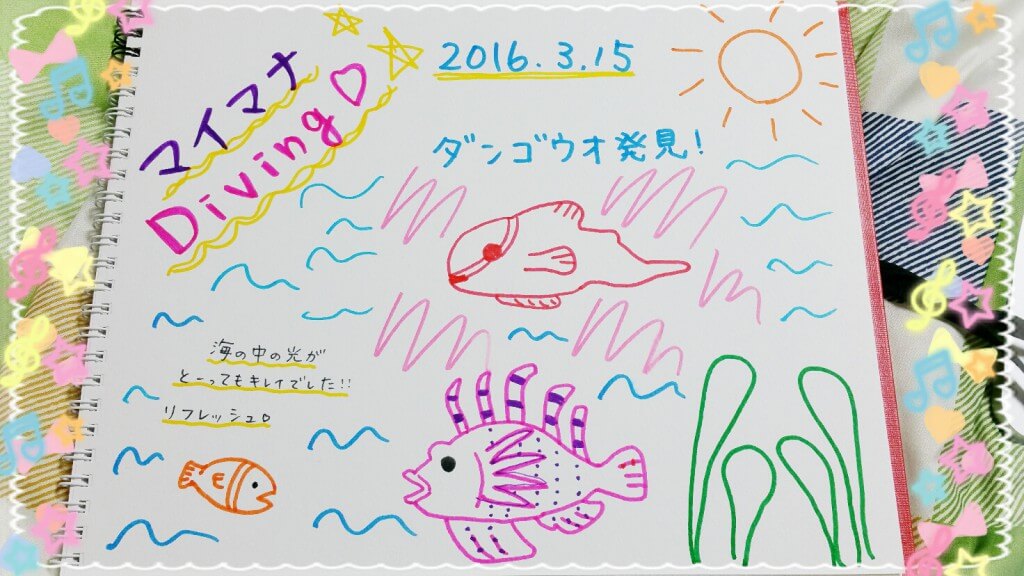 マイマナ
Diving♡
2016.3.15
ダンゴウオ発見!
海の中の光が
とーってもキレイでした!!
リフレッシュ♡